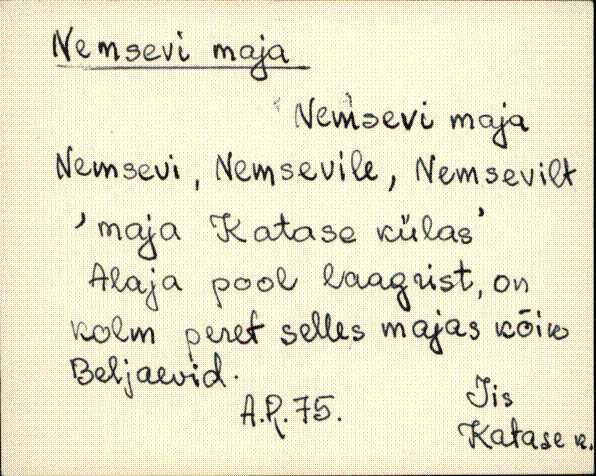 Nemsevi maja
Nemsevi maja
Nemsevi, Nemsevile, Nemsevilt
'maja Katase külas'
Alaja pool laagrist, on
kolm peret selles majas kõik
Beljaevid.
A.R. 75.
Iis
Katase k.